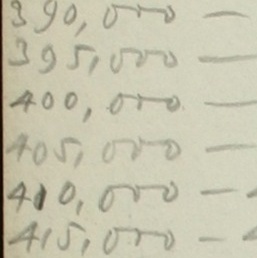 390,000 —
395,000 —
400,000 —
405,000 —
410,000 —
415,000 —